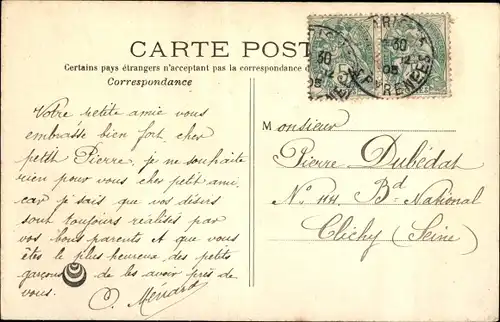 CARTE POST
Certains pays étrangers n'acceptant pas la correspondance
Correspondance
Votre petite amie vous
embrasse bien fort cher
petit Pierre, je ne souhaite
rien pour vous cher petit ami,
car je sais que vos désirs
sont toujours réalisés par
vos bons parents et que vous
êtes le plus heureux des petits
garçons de les avoir près de
vous.
O. Ménard
Monsieur
Pierre Dubédat
No 44 Bd National
Clichy (Seine)
30
12
05
30
12
05